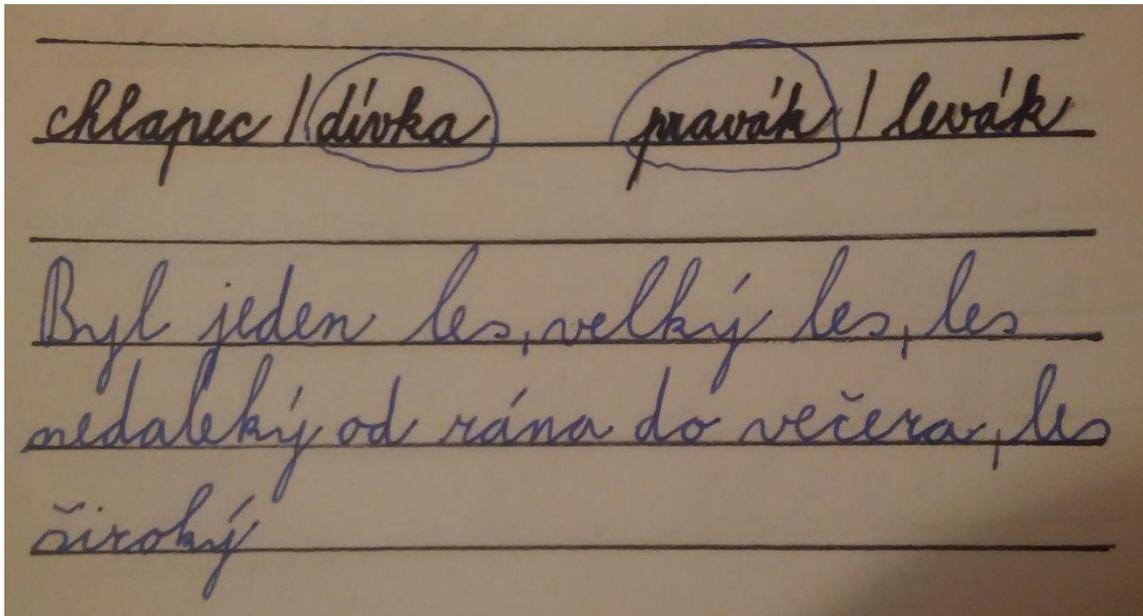 chlapec / dívka pravák / levák
Byl jeden les, velký les, les
nedaleký od rána do večera, les
široký